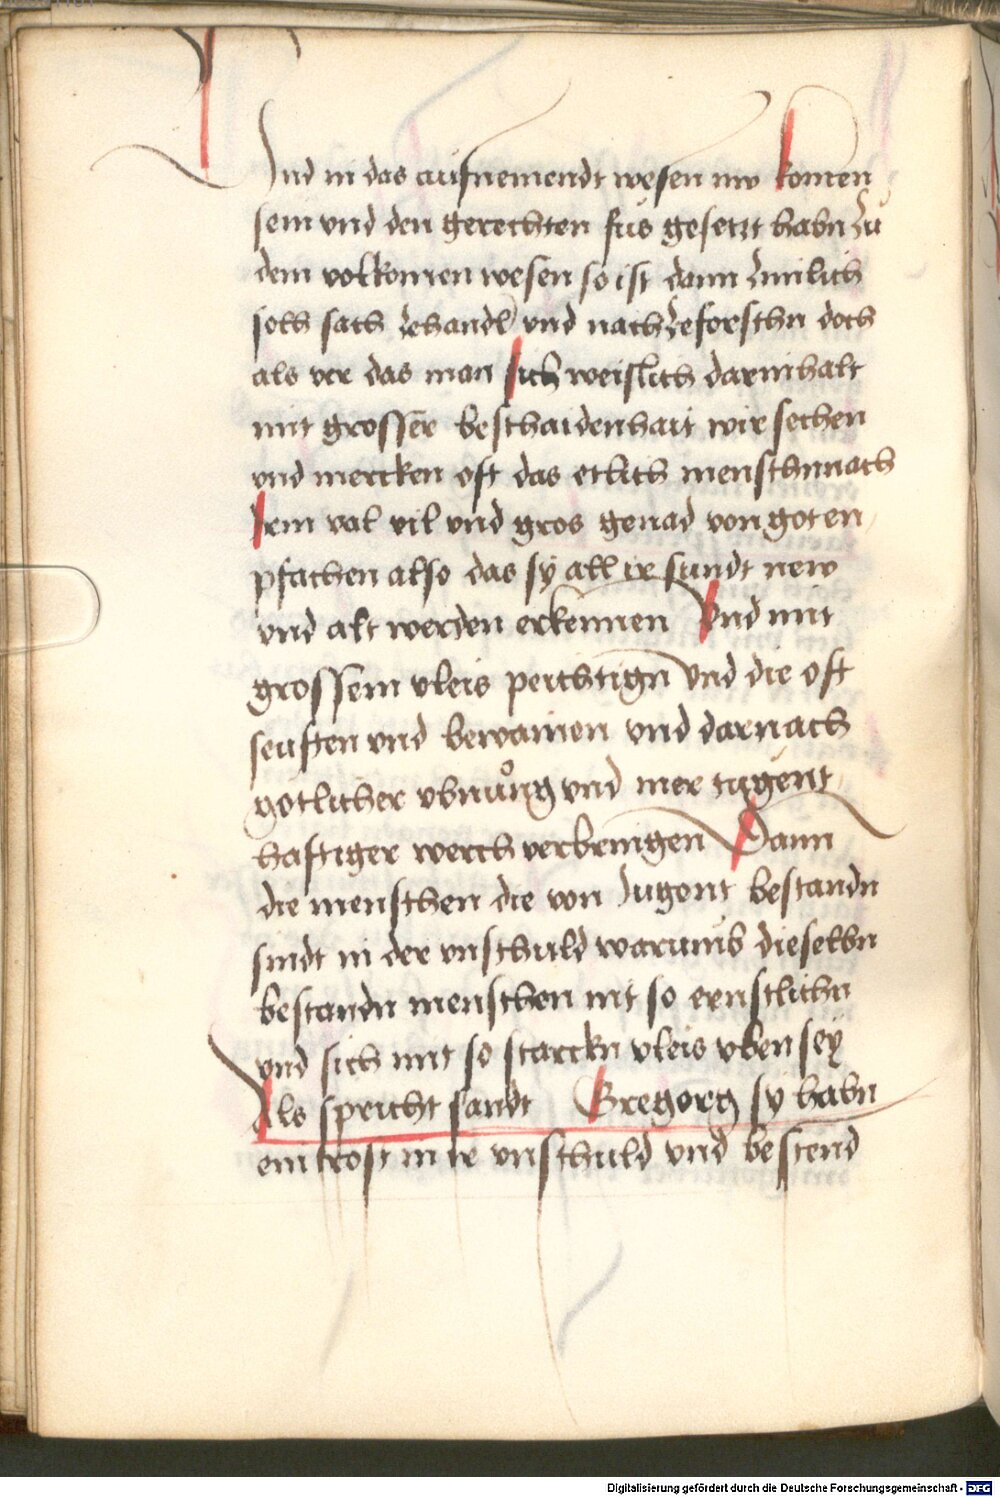 Vnd in das aufnemendt wesen nw komen
sein vnd den gerechten fus gesetzt habn zu
dem volkomen wesen so ist dann zimlich
solh sach zehandln vnd nachzeforschn doch
als ver das man sich weislich darinhalt
mit grosser beschaidenhait wir sechen
vnd mercken oft das etlich menschn nach
irem val vil vnd gros genad von got en
pfachen also das sy all ir sundt new
vnd alt werden erkennen Vnd mit
grossem vleis peichtign vnd die oft
seuften vnd bewainen vnd darnach
gotlicher vbnung vnd mer tugent
haftiger werch verbringen Dann
die menschen die von Jugent bestandn
sindt in der vnschuld warumb dieselbn
bestandn menschen nit so ernstlichn
vnd sich mit so starckn vleis vben sey
Als spricht sandt Gregorg sy habn
ein trost in ir vnschuld vnd bestend
Digitalisierung gefördert durch die Deutsche Forschungsgemeinschaft - DFG